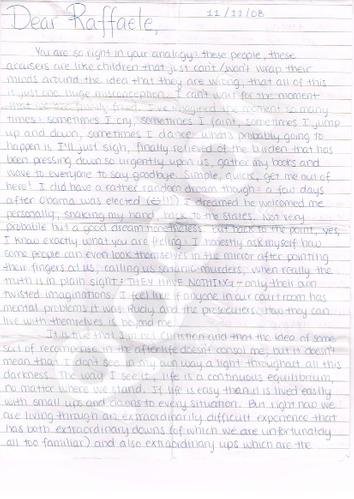 11/11/08
Dear Raffaele,
You are so right in your analogy: these people, these
accusers are like children that just can't/won't wrap their
minds around the idea that they are wrong, that all of this
is just one huge misconception. I can't wait for the moment
that we are finally freed. I've imagined the moment so many
times: sometimes I cry, sometimes I faint, sometimes I jump
up and down, sometimes I dance. What's probably going to
happen is I'll just sigh, finally relieved of the burden that has
been pressing down so urgently upon us, gather my books and
wave to everyone to say goodbye. Simple, quick, get me out of
here! I did have a rather random dream though: a few days
after Obama was elected I dreamed he welcomed me
personally, shaking my hand, back to the States. Not very
probable but a good dream nonetheless. But back to the point, yes,
I know exactly what you are feeling. I honestly ask myself how
some people can even look themselves in the mirror after pointing
their fingers at us, calling us murders, when really the
truth is in plain sight: THEY HAVE NOTHING - only their own
twisted imaginations. I feel like if anyone in our courtroom has
mental problems it was Rudy and the prosecuters. How they can
live with themselves is beyond me.
It is true that I'm not Christian and that the idea of some
sort of recompense in the afterlife doesn't consol me, but it doesn't
mean that I don't see in my own way a light throughout all this
darkness. The way I see it, life is a continuous equilibrium,
no matter where we stand. If life is easy then it is lived easily
with small ups and downs to every situation. But right now we
are living through an extraordinarily difficult experience that
has both extraordinary downs (of which we are unfortunately
all too familiar) and also extraordinary ups which are the